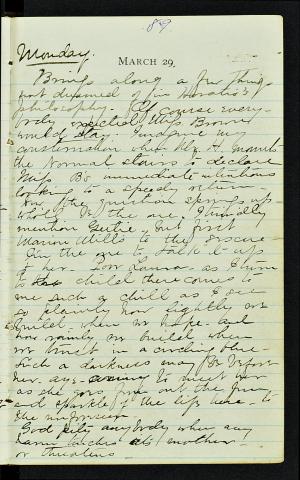 89
Monday.
MARCH 29
Brings along a few things
not dreamed of in Horatio's
philosophy. Of course every-
body expected Miss Brown
would stay. Imagine my
consternation when Mr. H. mounts
the Normal stairs to declare
Miss B's immediate intentions
looking to a speedy return.
Now the question springs up
who'll be the one. I timidly
mention Gertie, but first
Marion Mills to the rescue
I'm the one to talk it up
to her. Poor Laura, as I turn
to the child there comes to
me such a chill as I see
so plainly how lightly we
build, when we hope. and
how vainly we build when
we trust in a
Such a darkness may be before
her. to meet
as she goes from out the
and sparkle of the life here to
the
God pity anybody when any
harm touches its mother
or threatens